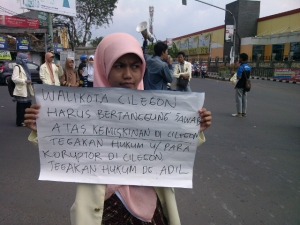 WALIKOTA CILEGON
HARUS BERTANGGUNG JAWAB
ATAS KEMISKINAN DI CILEGON
TEGAKAN HUKUM U/ PARA
KORUPTOR DI CILEGON
TEGAKAN HUKUM DG ADIL